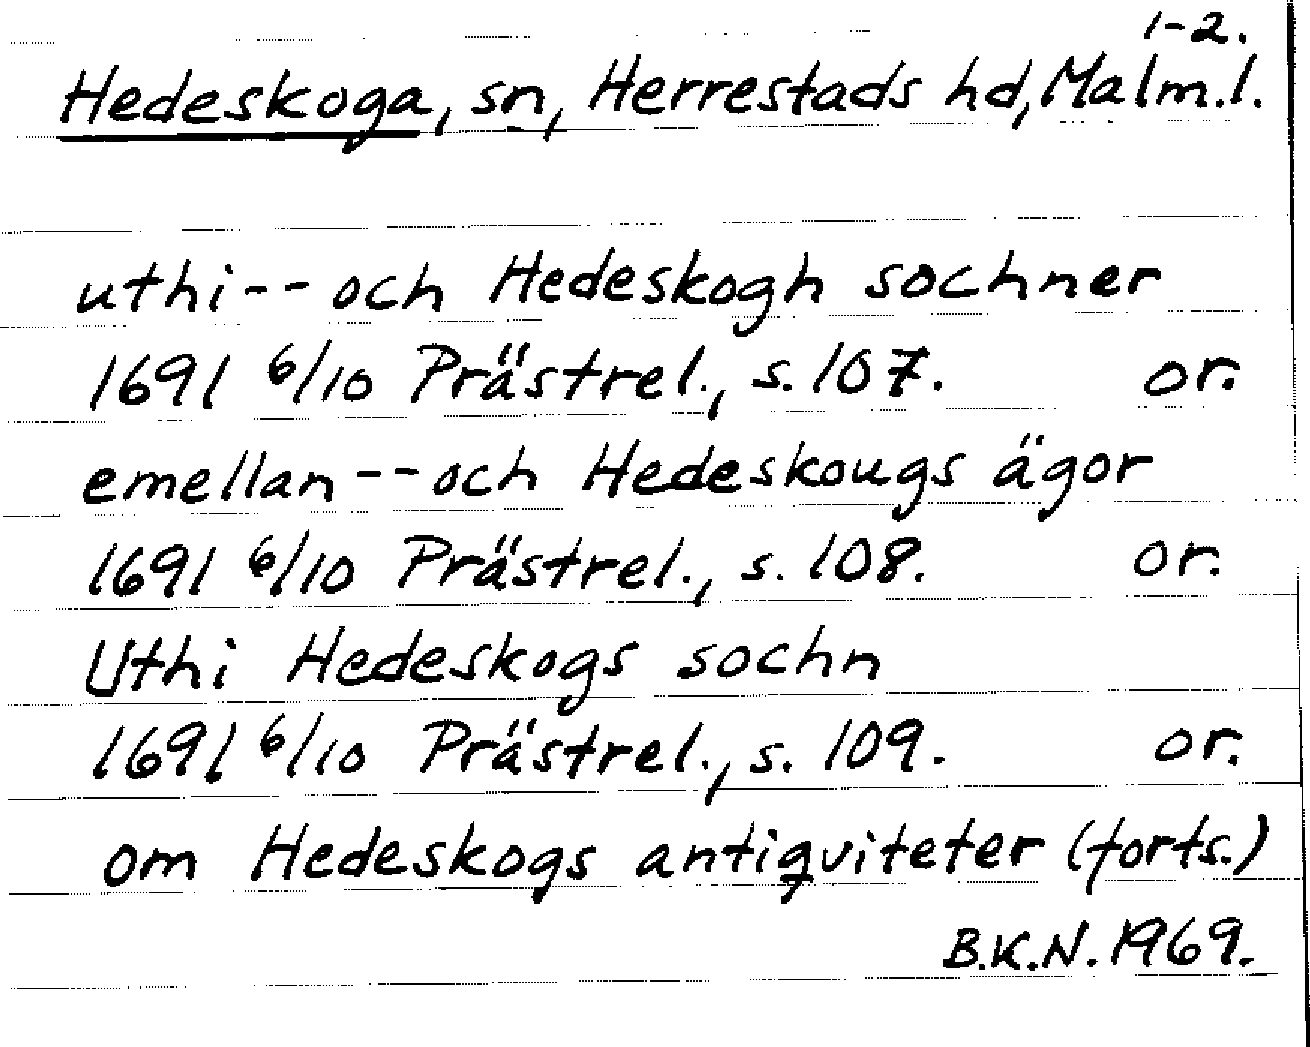 1-2.
Hedeskoga, sn, Herrestads hd, Malm.l.
uthi-- och Hedeskogh sochner
1691 6/10 Prästrel., s. 107. or.
emellan -- och Hedeskougs ägor
1691 6/10 Prästrel., s. 108. or.
Uthi Hedeskogs sochn
1691 6/10 Prästrel., s. 109. or.
om Hedeskogs antiqviteter (forts.)
B.K.N. 1969.